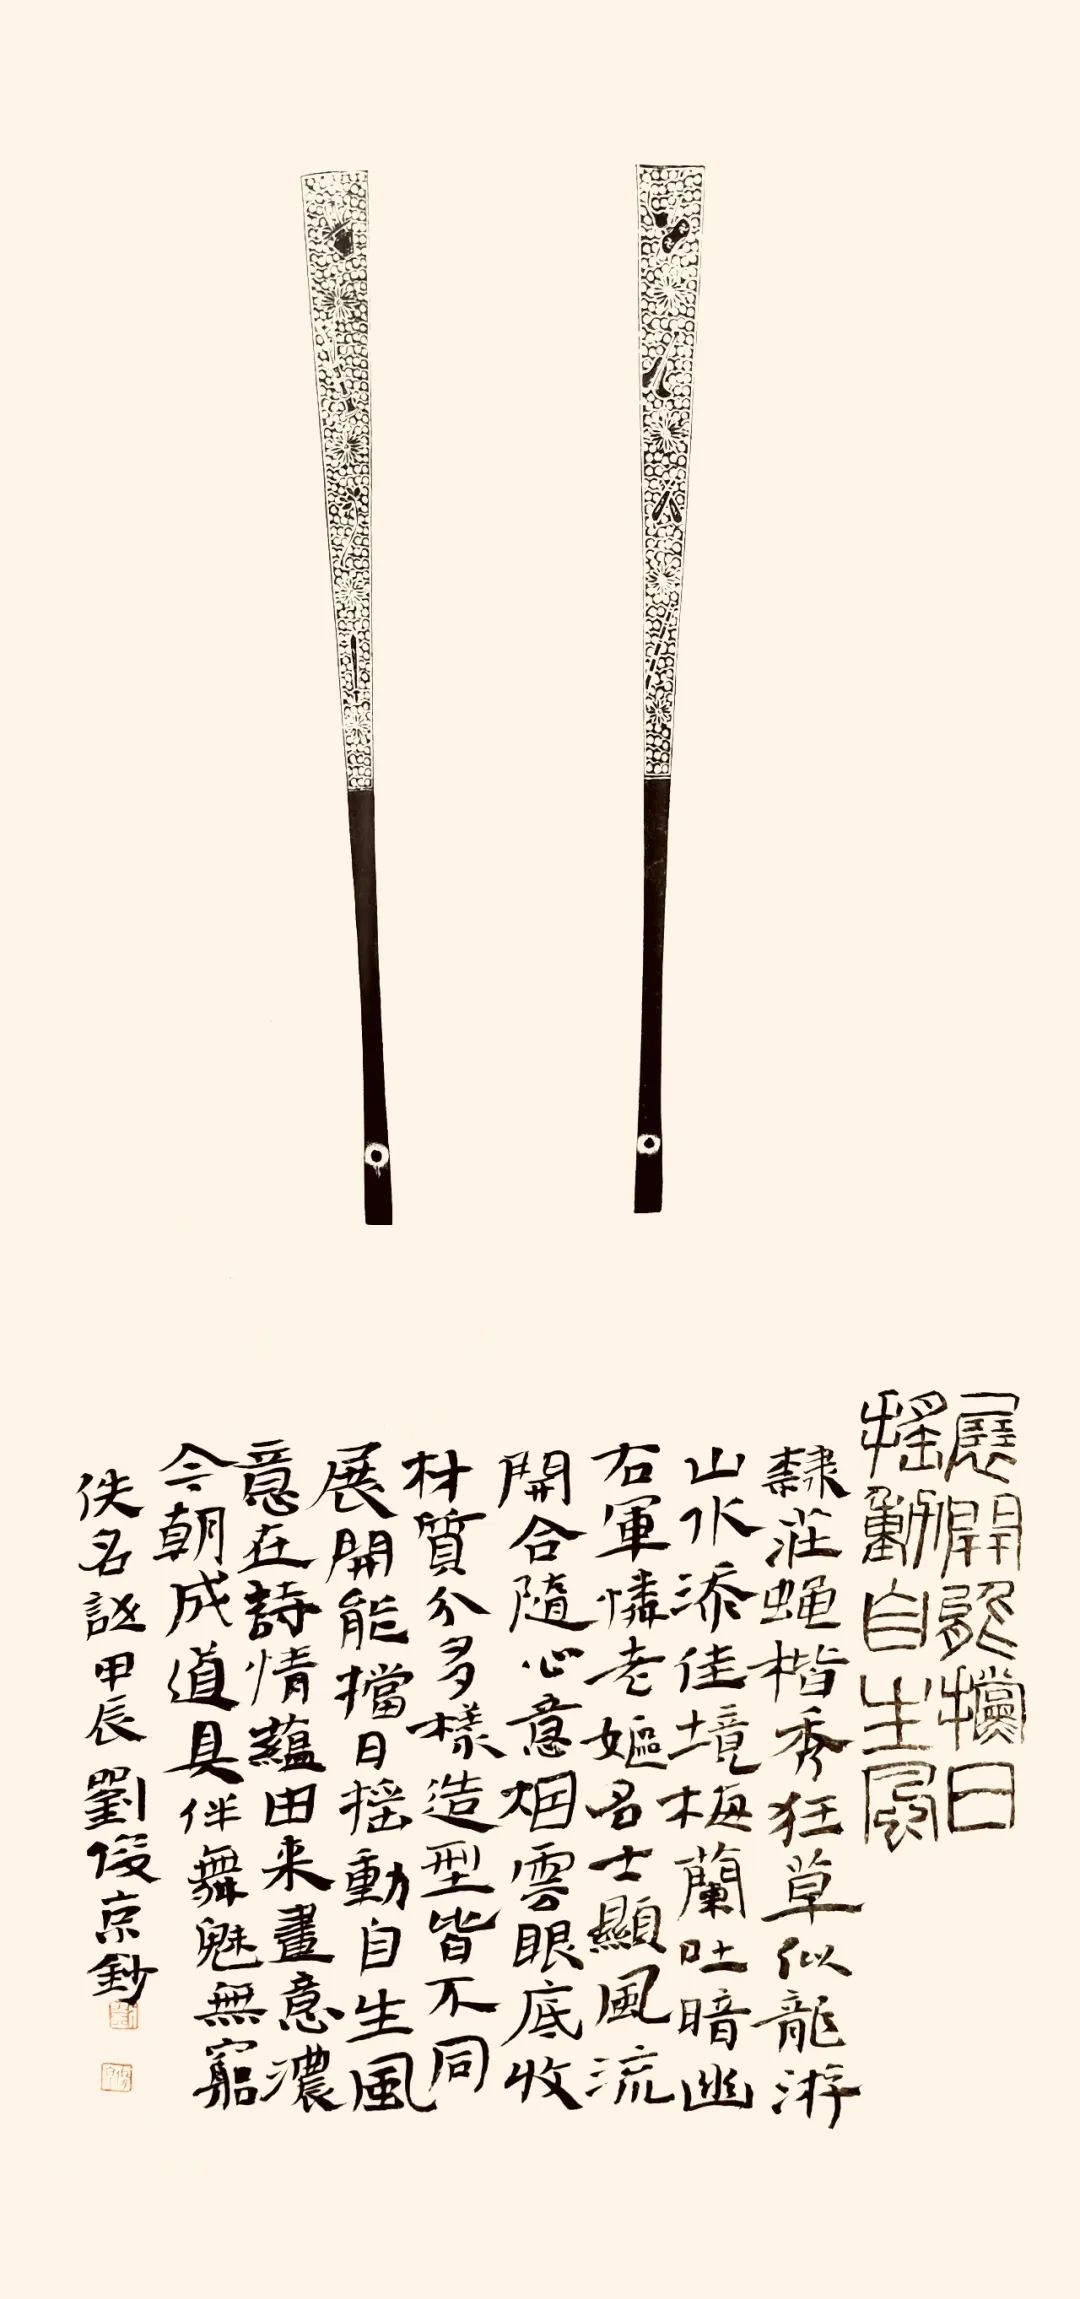 展開能擋日
搖動自生風
隸莊蠅楷秀狂草似龍游
山水添佳境梅蘭吐暗幽
右軍憐老嫗名士顯風流
開合隨心意烟雲眼底收
材質分多樣造型皆不同
展開能擋日搖動自生風
意在詩情蘊由来畫意濃
今朝成道具伴舞魅無窮
佚名詠甲辰劉俊京鈔